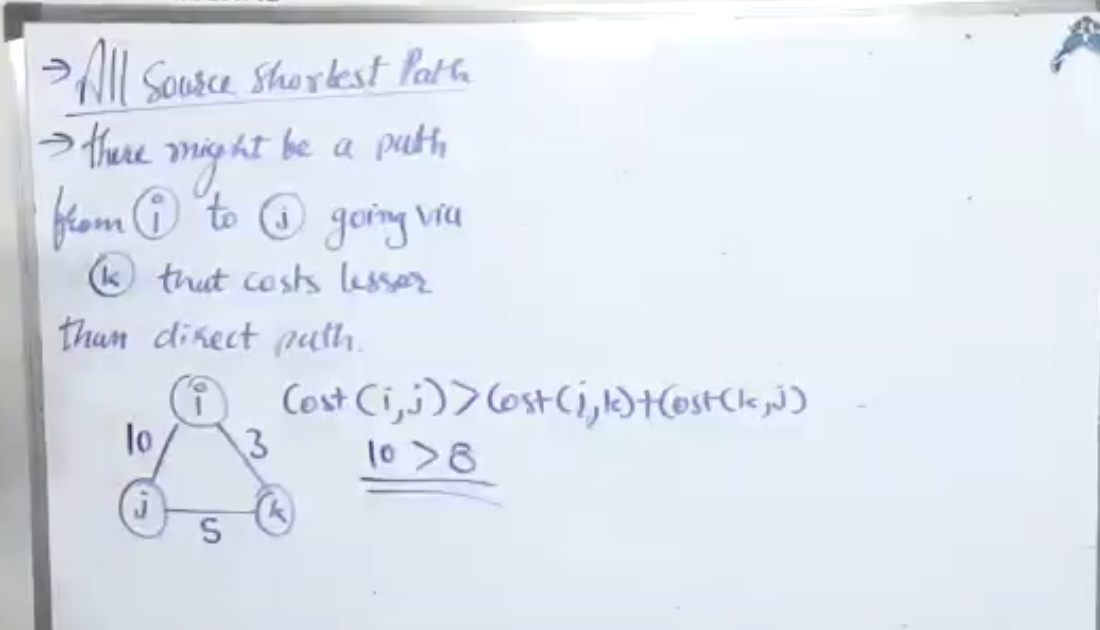 → All Source Shortest Path
→ there might be a path
from i to j going via
k that costs lesser
than direct path.
i
Cost(i,j)>Cost(j,k)+Cost(k,j)
10
3
10 > 8
j
k
5